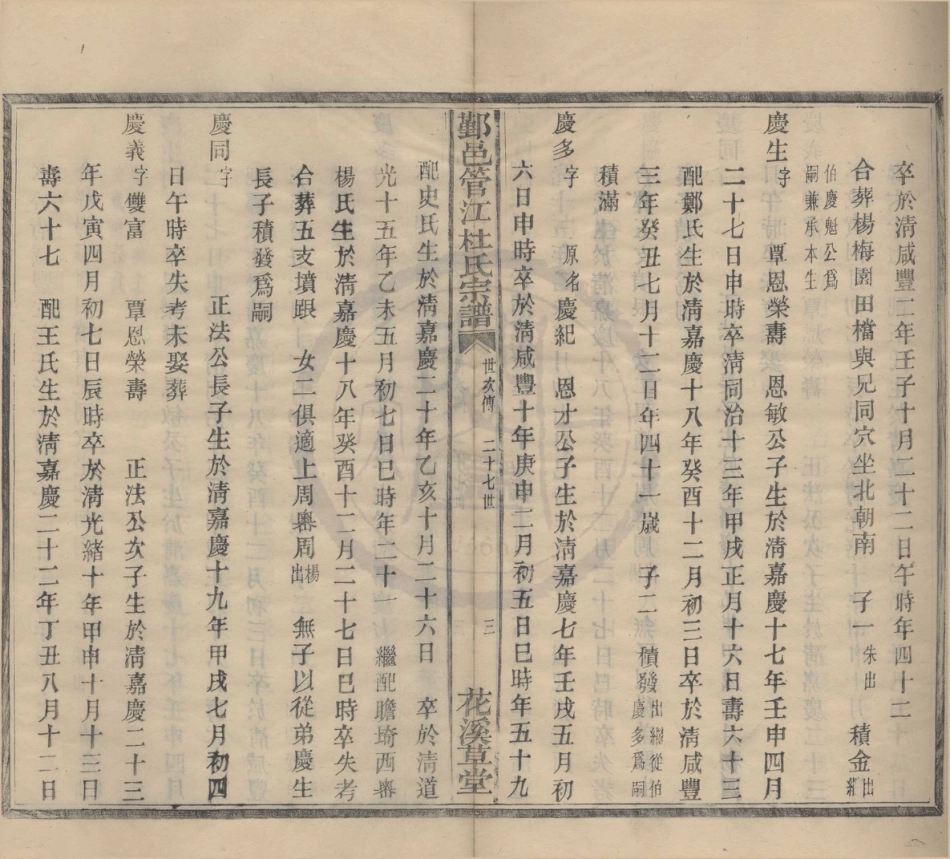 卒於清咸豐二年壬子十月二十二日午時年四十二
合葬楊梅園田檔與兄同穴坐北朝南 子一朱出 積金出繼
伯慶魁公為
嗣兼承本生
慶生字 覃恩榮壽 恩敏公子生於清嘉慶十七年壬申四月
二十七日申時卒清同治十三年甲戌正月十六日壽六十三
配鄭氏生於清嘉慶十八年癸酉十二月初三日卒於清咸豐
三年癸丑七月十二日年四十一歲 子二積發出繼從伯慶多爲嗣
積滿
慶多字 原名慶紀 恩才公子生於清嘉慶七年壬戌五月初
六日申時卒於清咸豐十年庚申二月初五日巳時年五十九
鄞邑管江杜氏宗譜 世次傳 二十七世 三 花溪草堂
配史氏生於清嘉慶二十年乙亥十月二十六日 卒於清道
光十五年乙未五月初七日巳時年二十一 繼配瞻埼西畨
楊氏生於清嘉慶十八年癸酉十二月二十七日巳時卒失考
合葬五支墳跟 女二俱適上周畨周楊出 無子以從弟慶生
長子積發爲嗣
慶同字 正法公長子生於清嘉慶十九年甲戌七月初四
日午時卒失考未娶葬
慶義字雙富 覃恩榮壽 正法公次子生於清嘉慶二十三
年戊寅四月初七日辰時卒於清光緒十年甲申十月十三日
壽六十七 配王氏生於清嘉慶二十二年丁丑八月十二日